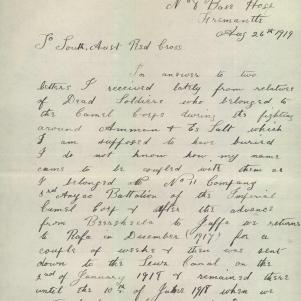 No 8 Base Hosp
Fremantle
Aug 26th 1919
To South Aust Red Cross
In answer to two
letters I received lately from relatives
of Dead Soldiers who belonged to
the Camel Corps during its fighting
around Amman & Es Salt which
I am supposed to have buried
I do not know how my name
came to be coupled with them as
I belonged to No 11 Company
3rd Anzac Battalion of the Imperial
Camel Corps & after the advance
from Beersheeba to Jaffa we returned
to Rafa in December 1917 for a
couple of weeks & then was sent
down to the Suez Canal on the
2nd of January 1918 & remained there
until the 10th of June 1918 when we